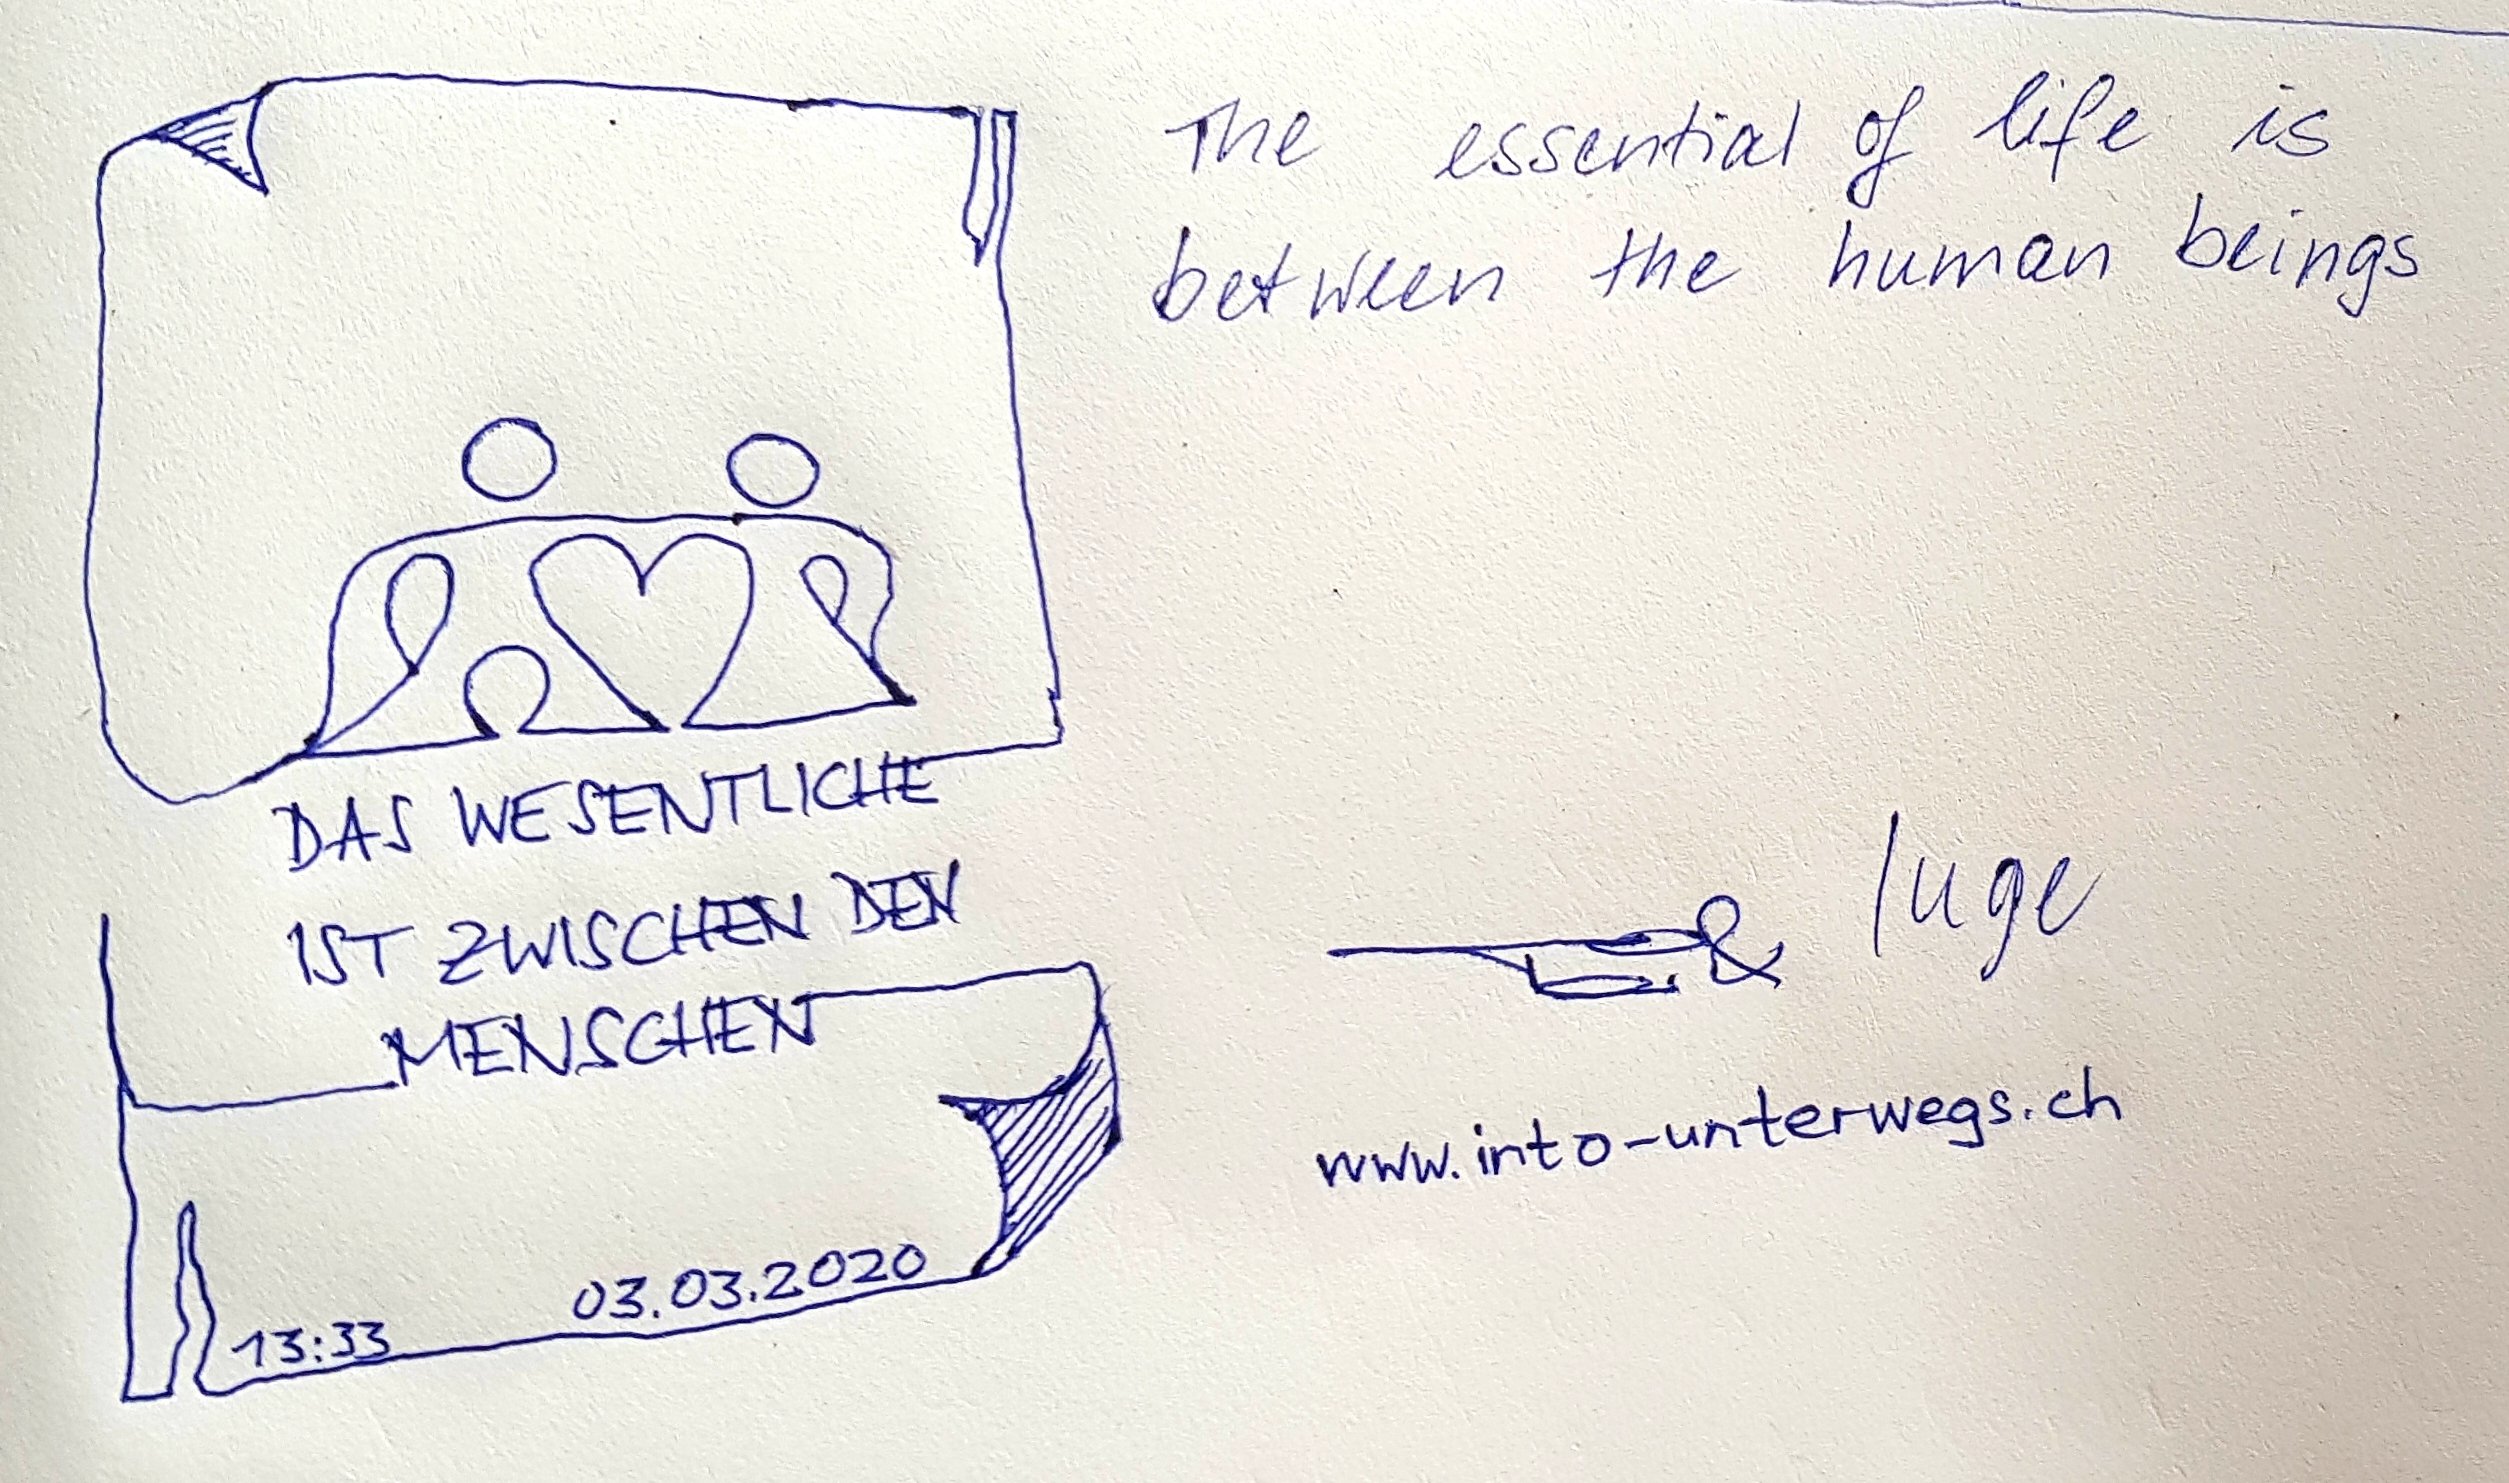 The essential of life is
between the human beings
DAS WESENTLICHE
IST ZWISCHEN DEN
MENSCHEN
13:33 03.03.2020
& luge
www.into-unterwegs.ch